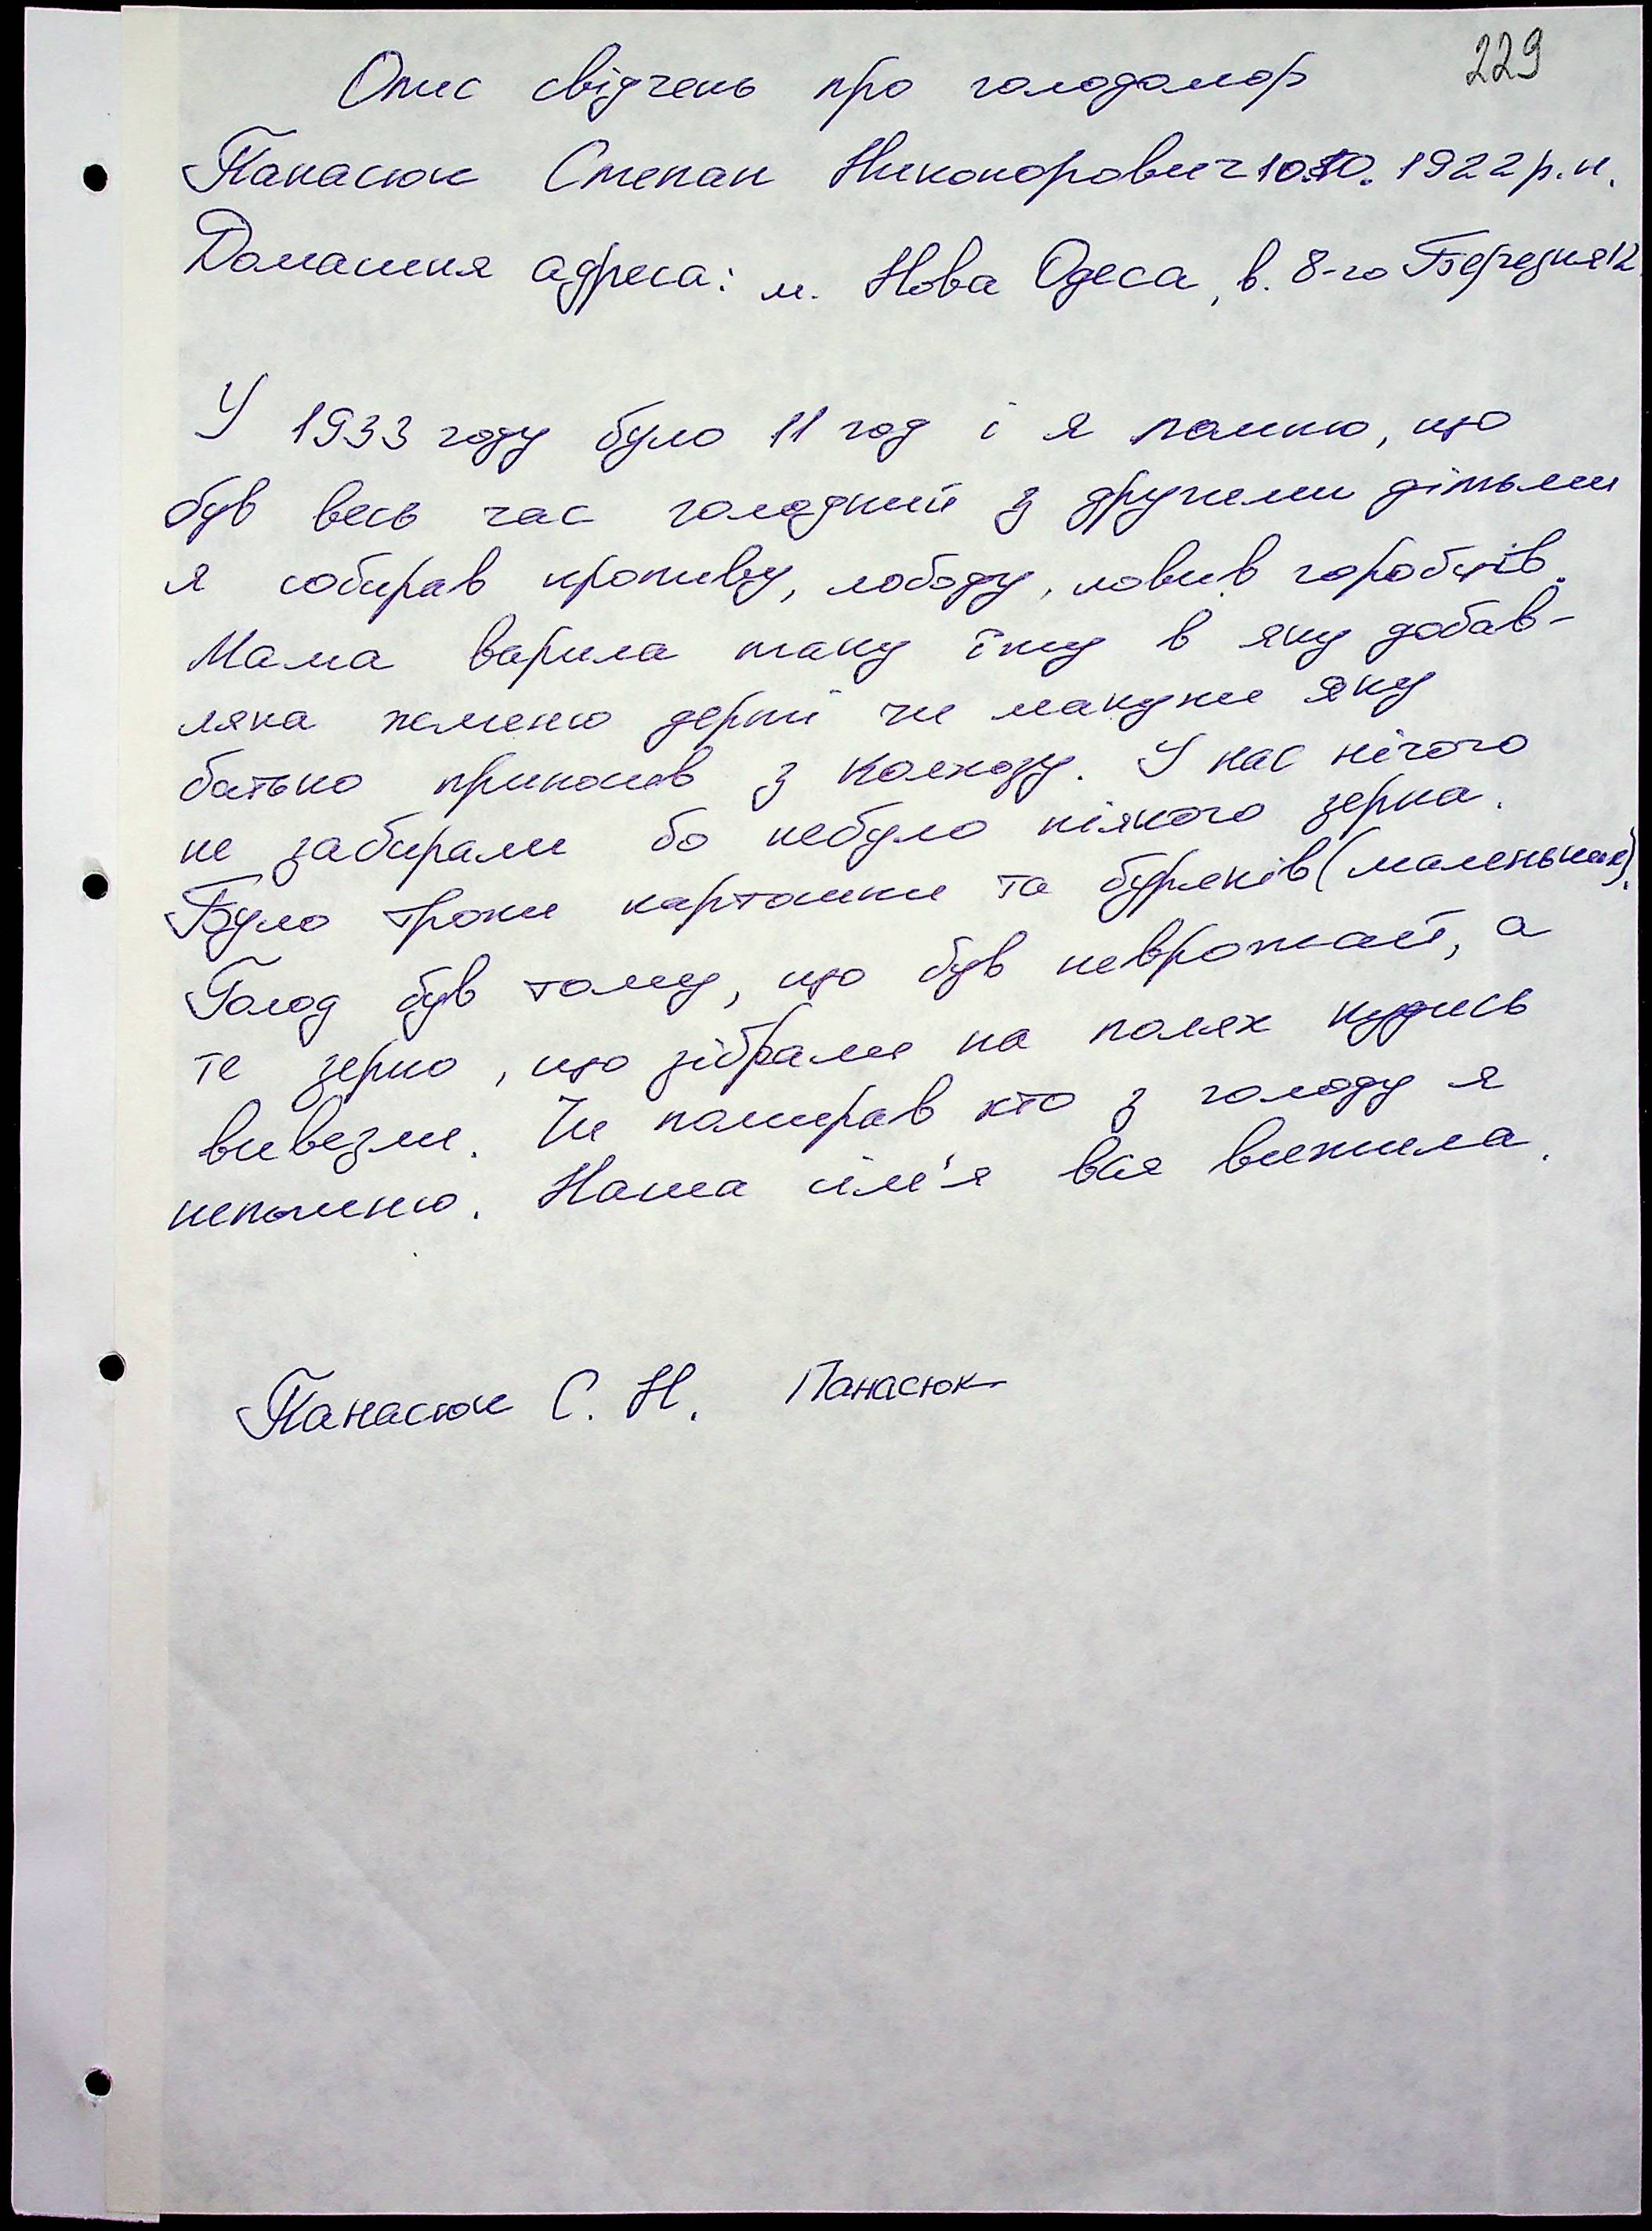 229
Опис свідчень про голодомор
Панасюк Степан Никонорович 10.10. 1922 р.н.
Домашня адреса: м. Нова Одеса, в. 8-го Березня 12
У 1933 году було 11 год і я помню, що
був весь час голодний з другими дітьми
я собирав кропиву, лободу, ловив горобців.
Мама варила таку їжу в яку добав-
ляла жменю дерті чи макухи яку
батько приносив з колхозу. У нас нічого
не забирали бо небуло ніякого зерна.
Було трохи картошки та буряків (маленьких).
Голод був тому, що був неврожай, а
те зерно, що зібрали на полях кудись
вивезли. Чи помирав хто з голоду я
непомню. Наша сім'я вся вижила.
Панасюк С. Н. Панасюк